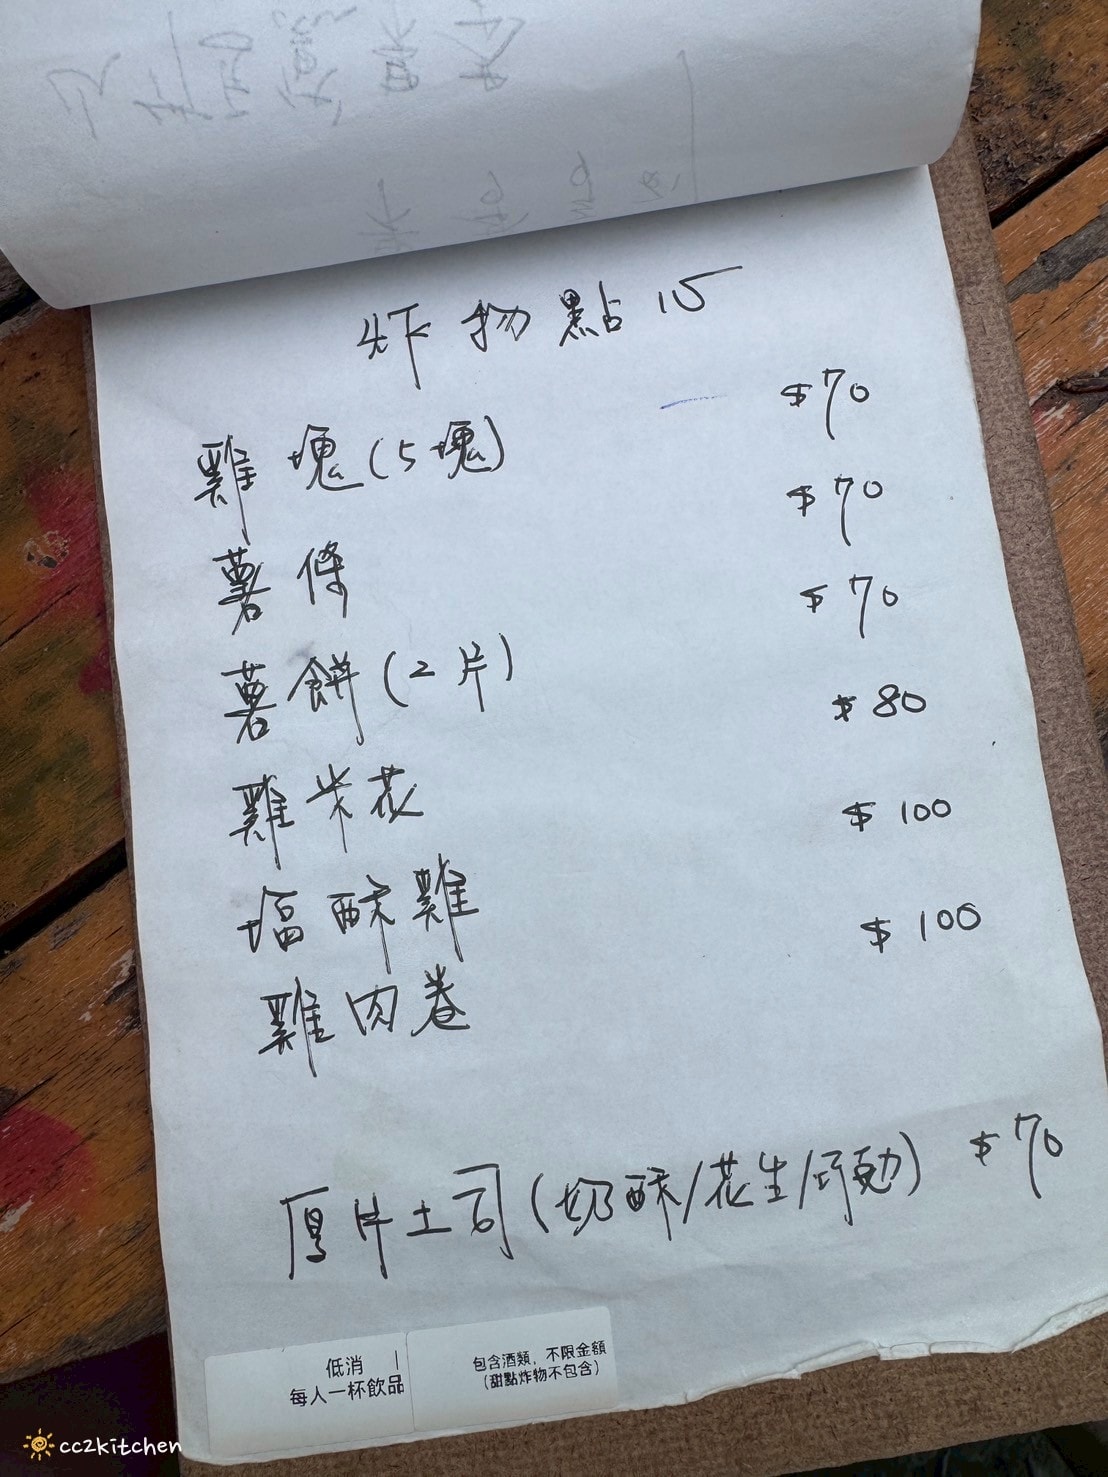 炸物點心
雞塊(5塊) $70
薯條 $70
薯餅(2片) $70
雞米花 $80
塩酥雞 $100
雞肉卷 $100
厚片土司(奶酥/花生/巧克力) $70
低消 |
每人一杯飲品
包含酒類，不限金額
(甜點炸物不包含)
cc2kitchen